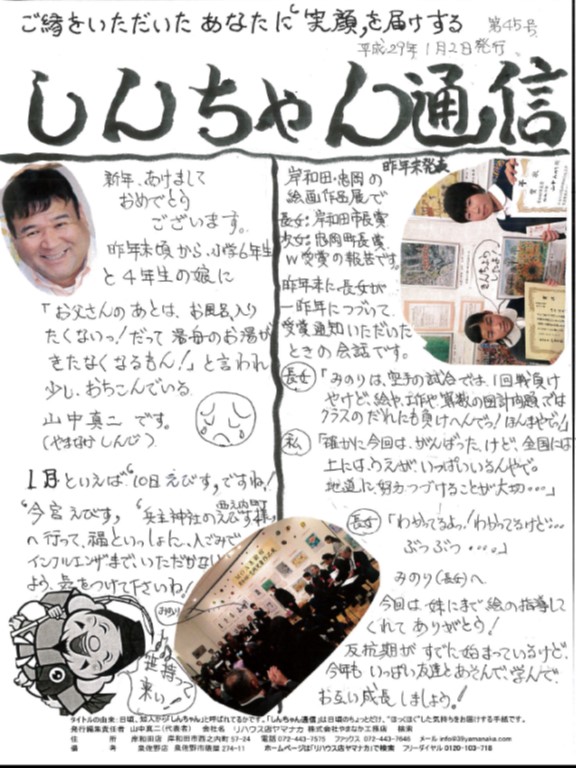 ご縁をいただいた あなたに"笑顔"を届けする
第45号
平成29年1月2日発行
しんちゃん通信
新年、あけまして
おめでとう
ございます。
昨年末頃から、小学6年生
と4年生の娘に
「お父さんのあとは、お風呂、入り
たくないっ!だって 湯舟のお湯が
きたなくなるもん!」と言われ
少し、おちこんでいる
山中真二 です。
(やまなか しんじ)
1月といえば"10日えびす"ですね!
"今宮えびす" "兵主神社のえびす様"
西之内町
へ行って、福といっしょに、人ごみで
インフルエンザまで、いただかない
よう、気をつけて下さいね!
笹持って
来い!
昨年末発表
岸和田・忠岡の
絵画作品展で
長女:岸和田市長賞
次女:忠岡町長賞
W受賞の報告です。
昨年末に、長女が
一昨年につづいて、
受賞通知いただいた
ときの会話です。
長女 「みのりは、空手の試合では、1回戦負け
やけど、絵や、工作や、算数の図計問題では
クラスのだれにも負けへんでっ!ほんまやで!」
私 「確かに今回は、がんばった、けど、全国には
上には、うえが、いっぱいいるんやで。
地道に、努力つづけることが大切・・・」
長女 「わかってるよっ!わかってるけど・・・
ぶつぶつ・・・。」
みのり(長女)へ
今回は、妹にまで絵の指導して
くれて ありがとう!
反抗期が すでに始まっているけど、
今年も いっぱい友達とあそんで、学んで、
お互い成長しましょう!
タイトルの由来:日頃、知人から「しんちゃん」と呼ばれてるかです。「しんちゃん通信」は日頃のちょっとだけ、"ほっほく"した気持ちをお届けする手紙です。
発行編集責任者 山中真二(代表者) 会社名 リハウス店ヤマナカ 株式会社やまなか工務店 検索
住 所 岸和田店 岸和田市西之内町57-24 電話 072-443-7575 ファックス 072-443-7646 メール info@39yamanaka.com
備 考 泉佐野店 泉佐野市鶴原274-11 ホームページは「リハウス店ヤマナカ」で検索 フリーダイヤル 0120-103-718